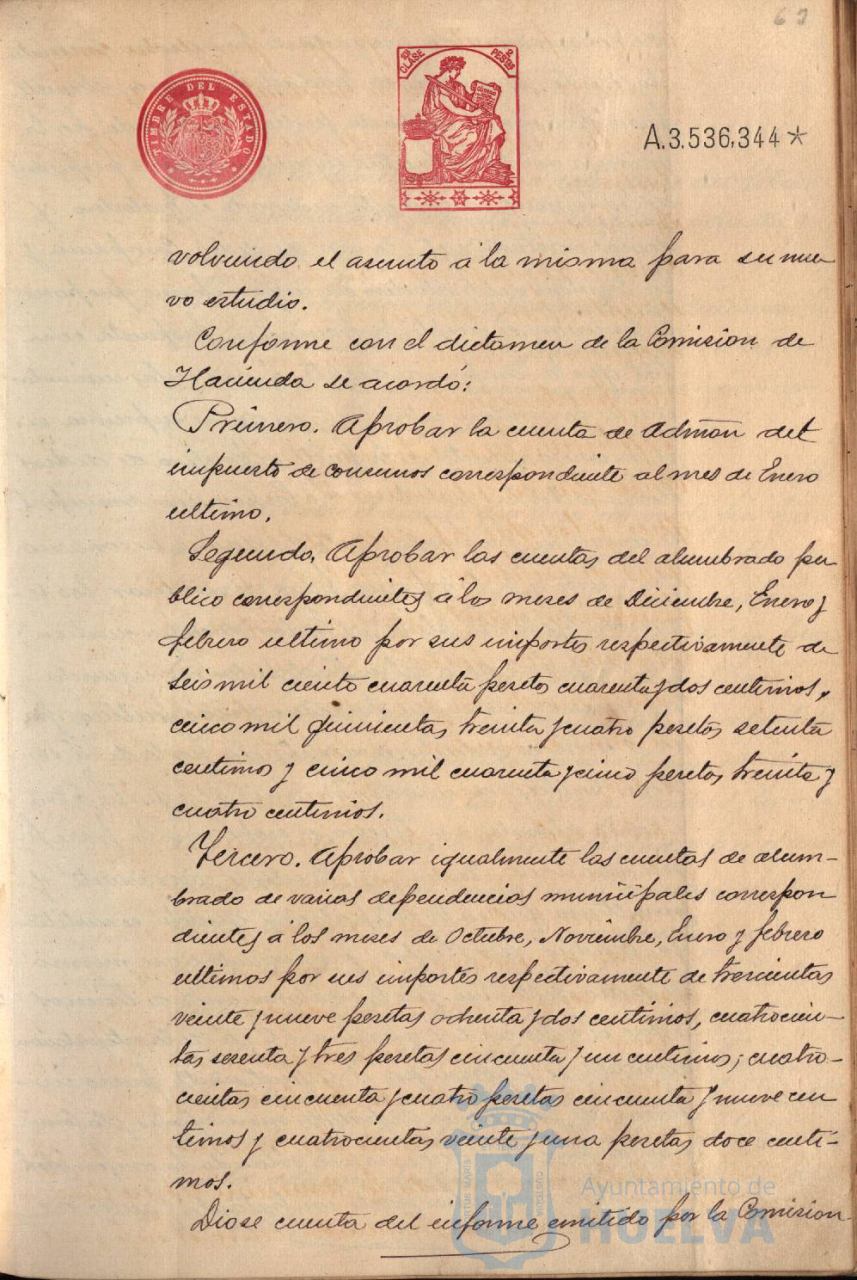 63
TIMBRE DEL ESTADO
CLASE 2 PESETAS
A.3.536,344*
volviendo el asunto á la misma para su nue
vo estudio.
Conforme con el dictamen de la Comision de
Hacienda se acordó:
Primero. Aprobar la cuenta de Admon del
impuesto de consumos correspondiente al mes de Enero
ultimo.
Segundo. Aprobar las cuentas del alumbrado pu
blico correspondientes á los meses de Diciembre, Enero y
febrero ultimo por sus importes respectivamente de
seis mil ciento cuarenta pesetas cuarenta y dos centimos,
cinco mil quinientas treinta y cuatro pesetas setenta
centimos y cinco mil cuarenta y cinco pesetas treinta y
cuatro centimos.
Tercero. Aprobar igualmente las cuentas de alum-
brado de varias dependencias municipales correspon
dientes á los meses de Octubre, Noviembre, Enero y febrero
ultimos por sus importes respectivamente de trescientas
veinte y nueve pesetas ochenta y dos centimos, cuatrocien-
tas sesenta y tres pesetas cincuenta y un centimos; cuatro-
cientas cincuenta y cuatro pesetas cincuenta y nueve cen
timos y cuatrocientas veinte y una pesetas doce centi-
mos.
Diose cuenta del informe emitido por la Comision
Ayuntamiento de
HUELVA